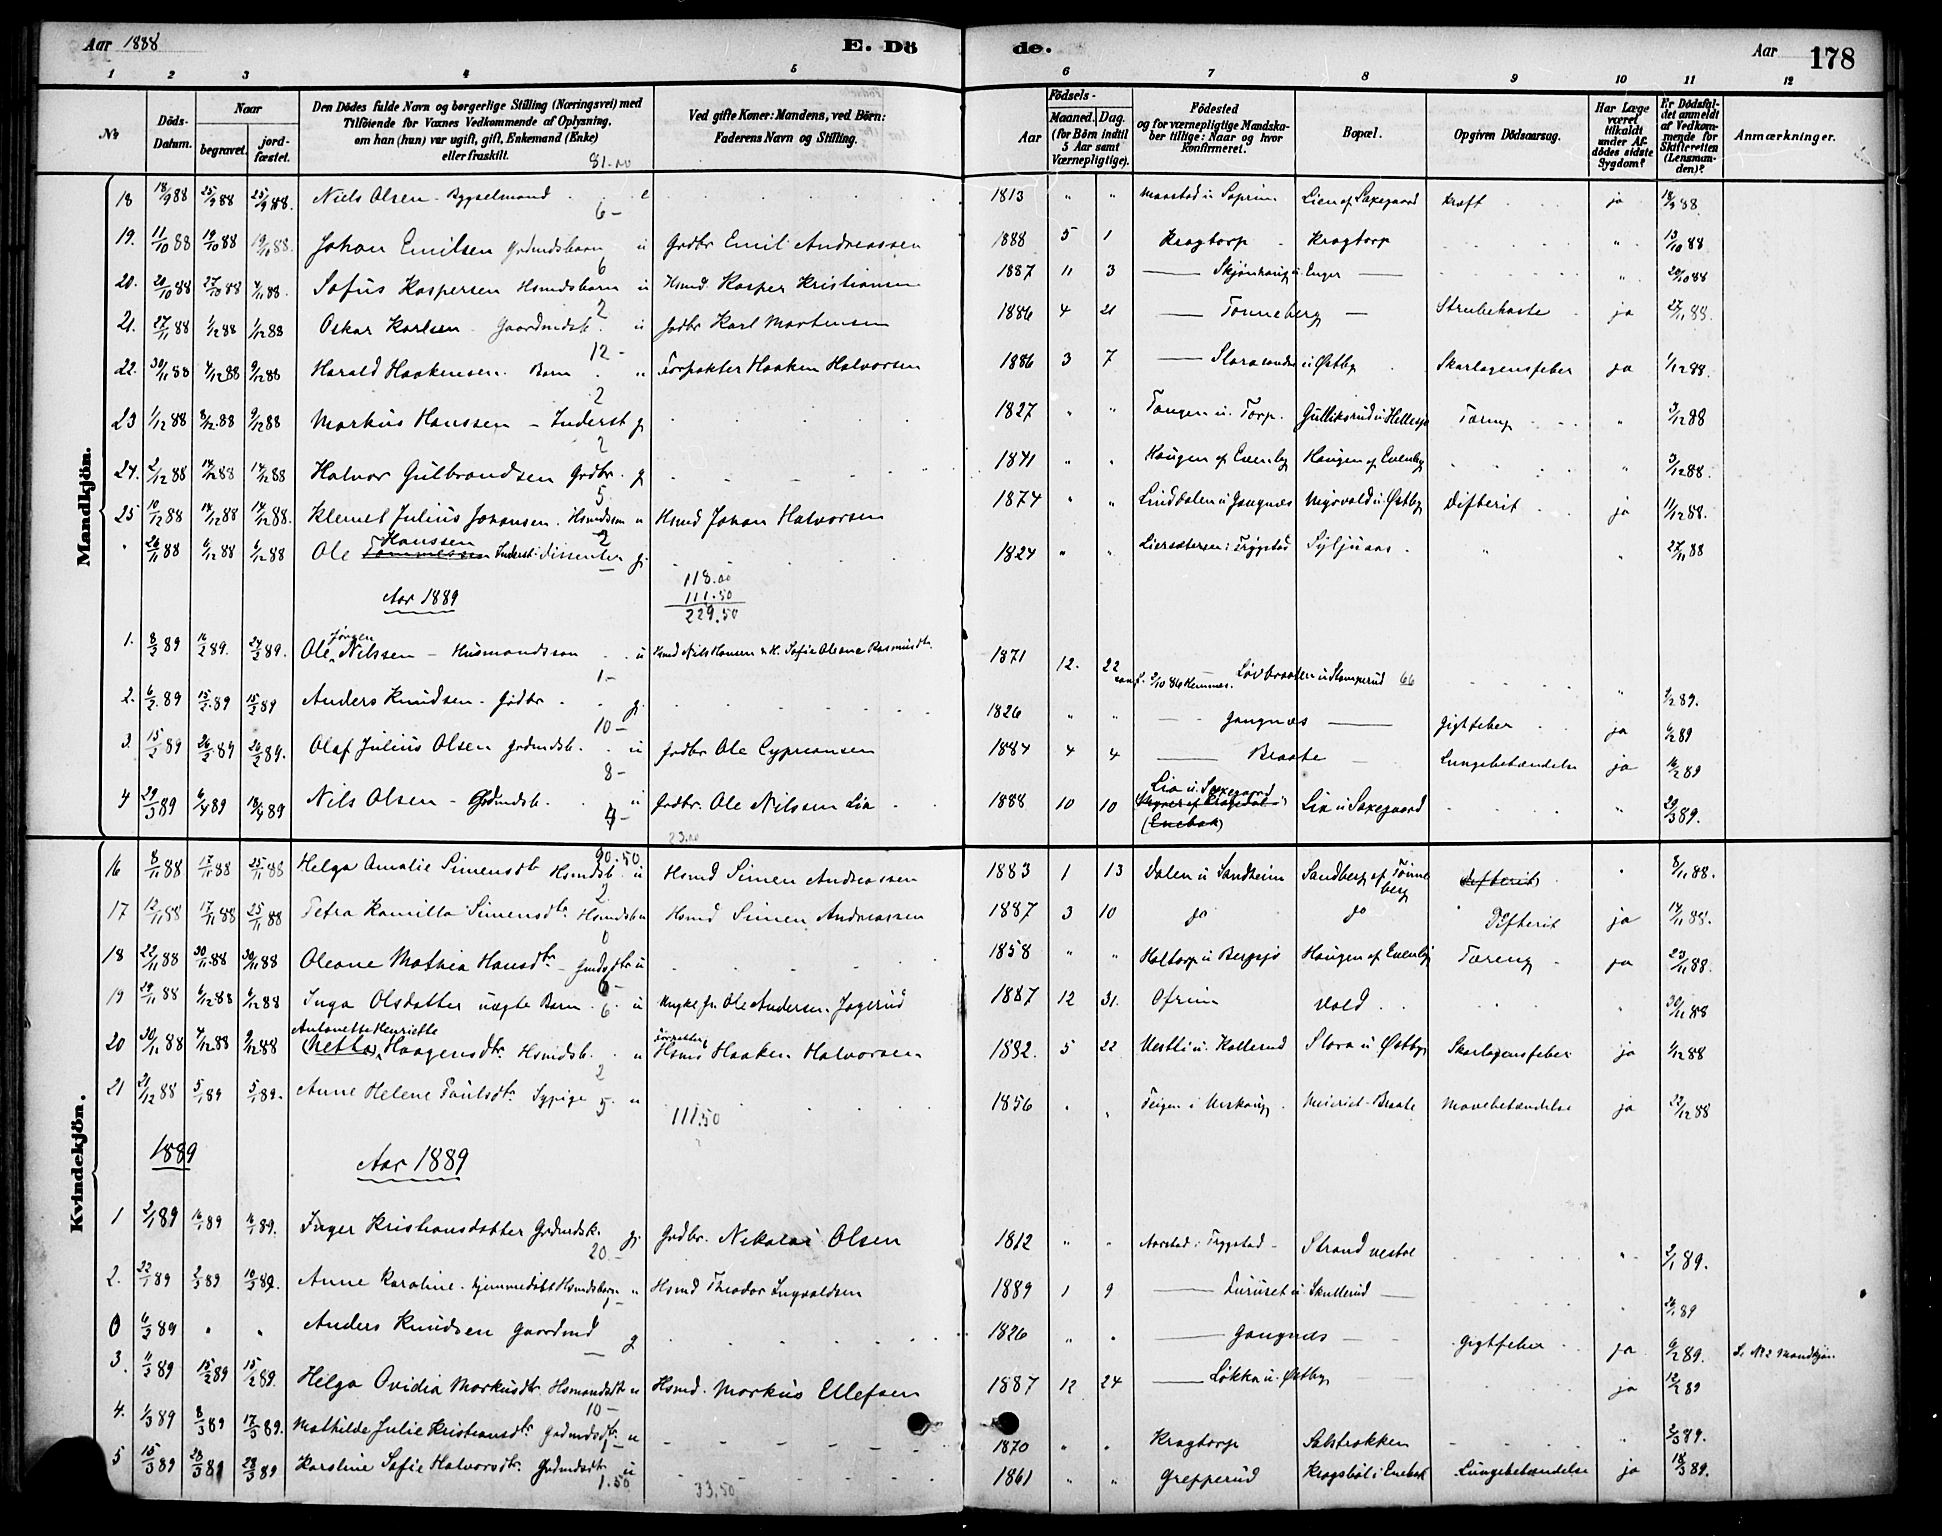 Aar 1888 E. Döde. Aar 178
1 2 3 4 5 6 7 8 9 10 11 12
No
Döds-Datum.
Naar begravet. jordfæstet.
Den Dödes fulde Navn og borgerlige Stilling (Næringsvei) med Tilföiende for Voxnes Vedkommende af Oplysning, om han (hun) var ugift, gift, Enkemand (Enke) eller fraskilt.
Ved gifte Koner: Mandens, ved Börn: Faderens Navn og Stilling.
Födsels- Aar Maaned. Dag. (for Börn indtil 5 Aar samt Værnepligtige).
Födested og for værnepligtige Mandskaber tillige: Naar og hvor Konfirmeret.
Bopæl.
Opgiven Dödsaarsag.
Har Læge været tilkaldt under Afdödes sidste Sygdom?
Er Dödsfaldet anmeldt af Vedkommende for Skifteretten (Lensmanden)?
Anmærkninger.
81.00
Mandkjön.
18 18/9 88 25/9 88 25/9 88. Niels Olsen - Bygselmand e 1813 " " Lien af Saxegaard Kræft ja 18/9 88.
6 -
19. 11/10 88 19/10 88 19/10 88. Johan Emilsen Grdmdsbarn u Grdbr Emil Andreassen 1888 5 1 Kragtorp - Kragtorp " 13/10 88
6
20. 20/10 88 27/10 88 4/11 88. Sofus Kaspersen Hsmdsbarn u Hsmd. Kasper Kristiansen 1887 11 3 — Skjønhaug u. Enger — " 20/10 88
2
21. 27/11 88 1/12 88 1/12 88 Oskar Karlsen - Gaardmdsb. u Grdbr Karl Mortensen 1886 4 21 — Tonneberg — Strubehoste ja 27/11 88.
12 -
22. 30/11 88 4/12 88 9/12 88 Harald Haakensen. Barn " Forpakter Haaken Halvorsen 1886 3 7 — Slorasanden u Østby Skarlagensfeber ja 1/12 88.
2
23 1/12 88 8/12 88 9/12 88 Markus Hanssen - Inderst g 1827 " " Tangen u. Torp. Gulliksrud u Hellesjø Tæring " 3/12 88
2
24. 2/12 88 14/12 88 14/12 88 Halvor Gulbrandsen Grdbr. g 1841 " " Haugen af Evenby Haugen af Evenby " 3/12 88.
5
25 10/12 88 14/12 88 14/12 88. Klemet Julius Johansen. Hsmdssøn u Hsmd Johan Halvorsen 1874 " " Lindalen u Gangnæs Myrvold u. Østby Difterit ja 11/12 88.
2
" 26/11 88 6/12 88 6/12 88 Ole Hanssen Inderst: dissenter g. 1824 " " Liersætersen i Trygstad Siljuaas " " 27/11 88
118.00
111.50
229.50
Aar 1889
1. 8/2 89 16/2 89. 24/2 89. Ole Jørgen Nilssen - Husmandssøn u Hsmd Nils Hansen & H. Sofie Oleane Rasmusdtr. 1871 12. 22 conf. 3/10 86 Hemnæs. Løvbraaten u Kamperud 66 " 9/2 89.
1 -
2. 6/2 89 15/2 89 15/2 89 Anders Knudsen - Grdbr g. 1826 " " — Gangnæs — Gigtfeber ja 6/2 89
10 -
3. 15/2 89 26/2 89 26/2 89. Olaf Julius Olsen Grdmdsb. u Grdbr Ole Cypriansen 1884 4 4 — Braate — Lungebetændelse ja 16/2 89
8 -
4 29/3 89 6/4 89 18/4 89 Nils Olsen - Grdmdsb. u Grdbr. Ole Nilssen Lia 1888 10 10 Lia u. Saxegaard (Enebak) Lia u Saxegaard " 29/3 89.
4 -
23.00
Kvindekjön.
90.50
16 8/11 88 17/11 88 25/11 88 Helga Amalie Simensdtr Hsmdsb. u Hsmd Simen Andreassen 1883 1 13 Dalen u Sandheim Sandberg af Tonneberg Difterit " 8/11 88.
2
17 12/11 88 17/11 88 25/11 88 Petra Kamilla Simensdtr. Hsmdsb u Hsmd Simen Andreassen 1887 3 10 do do " Difterit ja 14/11 88.
0
18 22/11 88 30/11 88 30/11 88 Oleane Mathea Hansdtr - Gmdsdtr u 1858 " " Haltorp u Bergsjø Haugen af Evenby Tæring ja 23/11 88.
6 -
19 29/11 88 6/12 88 6/12 88 Inga Olsdatter uægte Barn. 6 u Ungkr fr. Ole Andersen Jogerud 1887 12 31. Ofrim Vold " 30/11 88
20 30/11 88 4/12 88 9/12 88 Antonette Henriette (Netta) Haagensdtr. Hsmdsb. u Forpakter Hsmd Haaken Halvorsen 1882. 5 22 Vestli u. Kallerud Slora u Østby Skarlagensfeber ja 1/12 88
2
21 21/12 88 5/1 89 5/1 89. Anne Helene Paulsdtr. Sypige 5. u 1856 " " Feigen i Urskoug Braate Mavebetændelse ja 22/12 88
111.50
1889
Aar 1889
1 2/1 89 16/1 89 16/1 89. Inger Kristiansdatter Grdmdsk. g. Grdbr. Nikolai Olsen 1812 " " Aarstad i Trygstad - Strand vestre " 2/1 89.
20 -
2. 22/1 89 2/3 89 10/3 89. Anne Karoline. hjemmedøbt Hsmdsbarn u Hsmd Theodor Ingvaldsen 1889 1 9 — Furuset u. Skullerud — 24/1 89
0 6/2 89 " " Anders Knudsen Gaardmd g 1826 " " — Gangnæs — Gigtfeber ja 6/2 89. Se No 2 Mandkjøn.
3. 11/2 89 15/2 89 15/2 89. Helga Ovidia Markusdtr. Hsmandsdtr u Hsmd. Markus Ellefsen 1887 12 24 — Løkka u. Østby ja 12/2 89
10 -
4. 1/3 89 8/3 89 17/3 89. Mathilde Julie Kristiansdtr. Grdmdsdtr. u 1870 " " Kragtorp Salstrokken " 2/3 89.
5 15/3 89 23/3 89 28/3 89 Karoline Sofie Halvorsdtr. Grdmdsdtr u 1861 " " Grepperud Kragsbøl i Enebak Lungebetændelse ja 18/3 89.
1.50
33.50